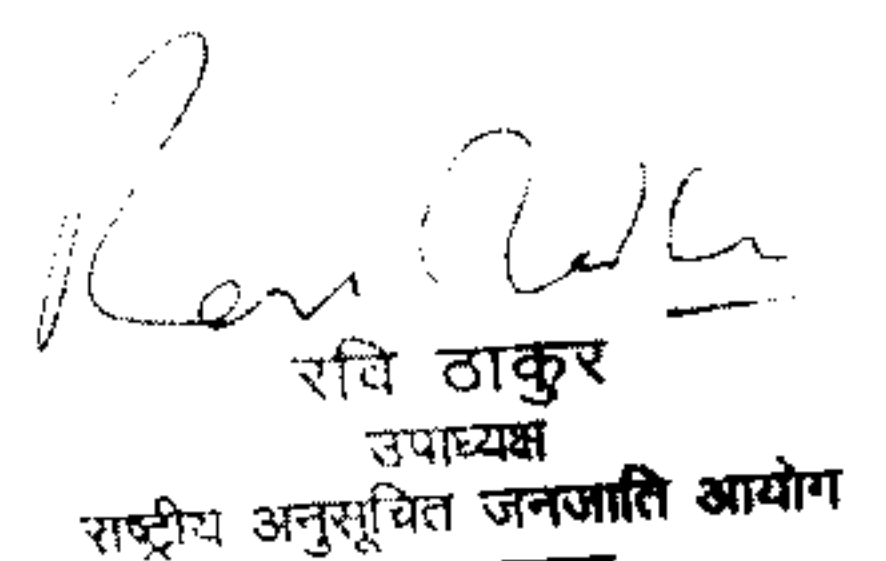 रवि ठाकुर
उपाध्यक्ष
राष्ट्रीय अनुसूचित जनजाति आयोग